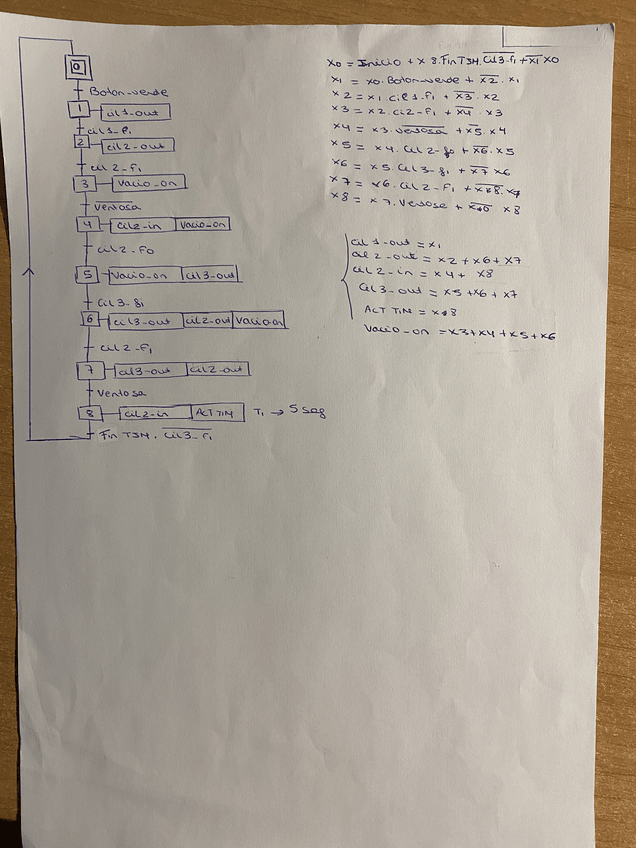 0
Boton-verde
1 cil1-out
cil1-f1
2 cil2-out
cil2-f1
3 vacio-on
ventosa
4 cil2-in vacio-on
cil2-f0
5 vacio-on cil3-out
cil3-f1
6 cil3-out cil2-out vacio-on
cil2-f1
7 cil3-out cil2-out
ventosa
8 cil2-in ACT TIM T1 → 5 seg
Fin T3M . c̅i̅l̅3̅-̅f̅1̅
x0 = Inicio + x8.Fin T3M.c̅i̅l̅3̅-̅f̅1̅ + x̅1̅ x0
x1 = x0.Boton-verde + x̅2̅ . x1
x2 = x1.cil1-f1 + x̅3̅ . x2
x3 = x2.cil2-f1 + x̅4̅ . x3
x4 = x3.v̅e̅n̅t̅o̅s̅a̅ + x̅5̅ . x4
x5 = x4.cil2-f0 + x̅6̅ . x5
x6 = x5.cil3-f1 + x̅7̅ x6
x7 = x6.cil2-f1 + x̅8̅ . x7
x8 = x7.ventosa + x̅0̅ x8
cil1-out = x1
cil2-out = x2 + x6 + x7
cil2-in = x4 + x8
cil3-out = x5 + x6 + x7
ACT TIM = x8
vacio-on = x3 + x4 + x5 + x6